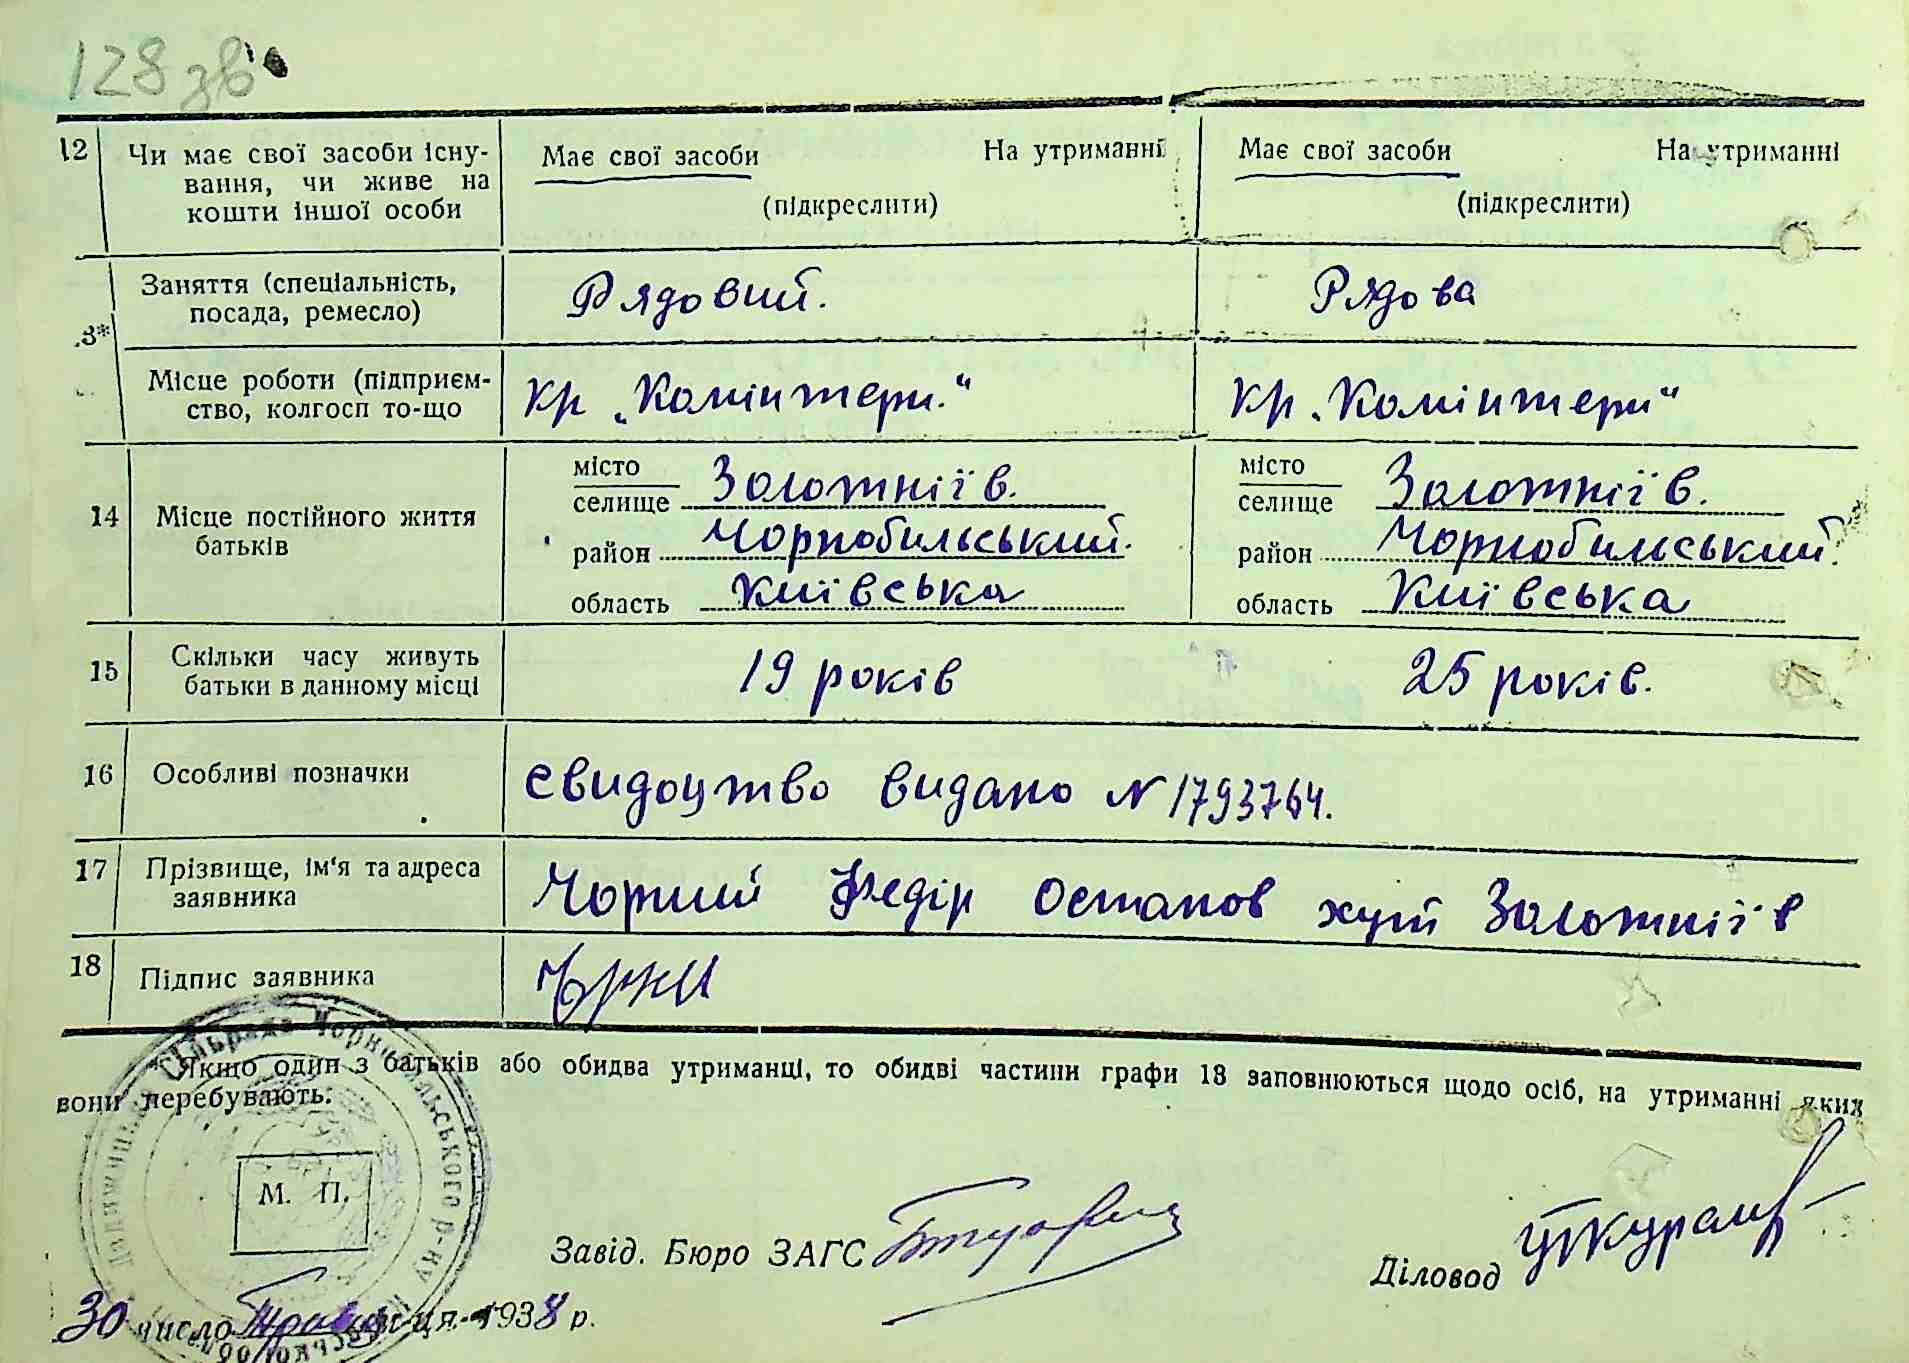 128 зв
12 Чи має свої засоби існу- Має свої засоби На утриманні Має свої засоби На утриманні
вання, чи живе на
кошти іншої особи (підкреслити) (підкреслити)
Заняття (спеціальність, Рядовий. Рядова
посада, ремесло)
3*
Місце роботи (підприєм- кр „Комінтерн." кр „Комінтерн"
ство, колгосп то-що
місто Золотніїв. місто Золотніїв.
селище селище
14 Місце постійного життя
батьків район Чорнобильський. район Чорнобильський.
область Київська область Київська
15 Скільки часу живуть 19 років 25 років.
батьки в данному місці
16 Особливі позначки Свидоцтво видано N 1793764.
17 Прізвище, ім'я та адреса Чорний Федір Остапов хут Золотніїв
заявника
18 Підпис заявника
*Якщо один з батьків або обидва утриманці, то обидві частини графи 18 заповнюються щодо осіб, на утриманні яких
вони перебувають.
М. П.
Завід. Бюро ЗАГС
Діловод
30 число Травня м-ця 1938 р.